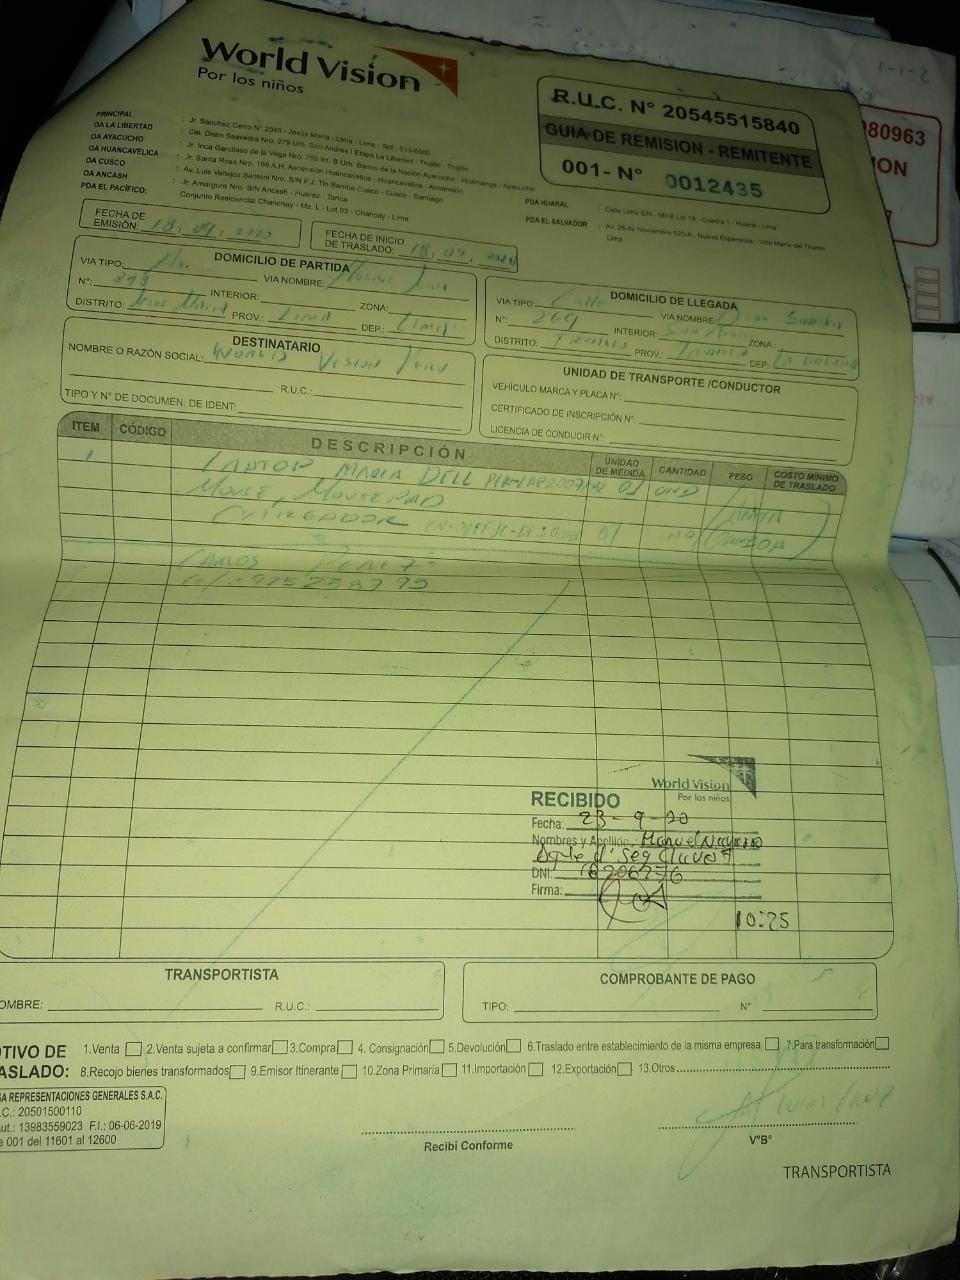 World Vision
Por los niños
R.U.C. N° 20545515840
GUIA DE REMISION - REMITENTE
001- N° 0012435
PRINCIPAL : Jr. Sánchez Cerro N° 2040 - Jesús María - Lima - Lima - Telf.: 513-6600
OA LA LIBERTAD : Cal. Dean Saavedra Nro. 279 Urb. San Andres I Etapa La Libertad - Trujillo - Trujillo
OA AYACUCHO : Jr. Inca Garcilaso de la Vega Nro. 755 Int. B Urb. Banco de la Nación Ayacucho - Huamanga - Ayacucho
OA HUANCAVELICA : Jr. Santa Rosa Nro. 198 A.H. Ascensión Huancavelica - Huancavelica - Ascensión
OA CUSCO : Av. Luis Vallejos Santoni Nro. S/N P.J. Tio Bamba Cusco - Cusco - Santiago
OA ANCASH : Jr. Amargura Nro. S/N Ancash - Huaraz - Tarica
PDA EL PACÍFICO: Conjunto Residencial Chanchay - Mz. L - Lot.03 - Chancay - Lima
PDA HUARAL : Calle Lima S/N - Mz B Lot 18 - Cuadra 1 - Huaral - Lima
PDA EL SALVADOR : Av. 26 de Noviembre 525-A - Nueva Esperanza - Villa María del Triunfo
Lima
FECHA DE EMISIÓN: 18, 09, 2020
FECHA DE INICIO DE TRASLADO: 18, 09, 2020
DOMICILIO DE PARTIDA
VIA TIPO: Av. VIA NOMBRE:
N°: INTERIOR: ZONA:
DISTRITO: Jesus Maria PROV.: Lima DEP.: Lima
DOMICILIO DE LLEGADA
VIA TIPO: Calle VIA NOMBRE: Dean Saavedra
N°: 269 INTERIOR: ZONA:
DISTRITO: Trujillo PROV.: Trujillo DEP.: La Libertad
DESTINATARIO
NOMBRE O RAZÓN SOCIAL: World Vision Peru
R.U.C.:
TIPO Y N° DE DOCUMEN. DE IDENT:
UNIDAD DE TRANSPORTE /CONDUCTOR
VEHÍCULO MARCA Y PLACA N°:
CERTIFICADO DE INSCRIPCIÓN N°:
LICENCIA DE CONDUCIR N°:
ITEM CÓDIGO DESCRIPCIÓN UNIDAD DE MEDIDA CANTIDAD PESO COSTO MÍNIMO DE TRASLADO
1 LAPTOP MARCA DELL 01 UND
MOUSE, MOUSEPAD
CARGADOR 01
CARLOS
Cel. 925258793
World Vision
Por los niños
RECIBIDO
Fecha: 23-9-20
Nombres y Apellido: Manuel Navarro
DNI: 18206776
Firma:
10:25
TRANSPORTISTA
OMBRE: R.U.C.:
COMPROBANTE DE PAGO
TIPO: N°
OTIVO DE
ASLADO:
1.Venta 2.Venta sujeta a confirmar 3.Compra 4. Consignación 5.Devolución 6.Traslado entre establecimiento de la misma empresa 7.Para transformación
8.Recojo bienes transformados 9.Emisor Itinerante 10.Zona Primaria 11.Importación 12.Exportación 13.Otros
SA REPRESENTACIONES GENERALES S.A.C.
.C.: 20501500110
ut.: 13983559023 F.I.: 06-06-2019
e 001 del 11601 al 12600
Recibí Conforme
V°B°
TRANSPORTISTA
80963
ION